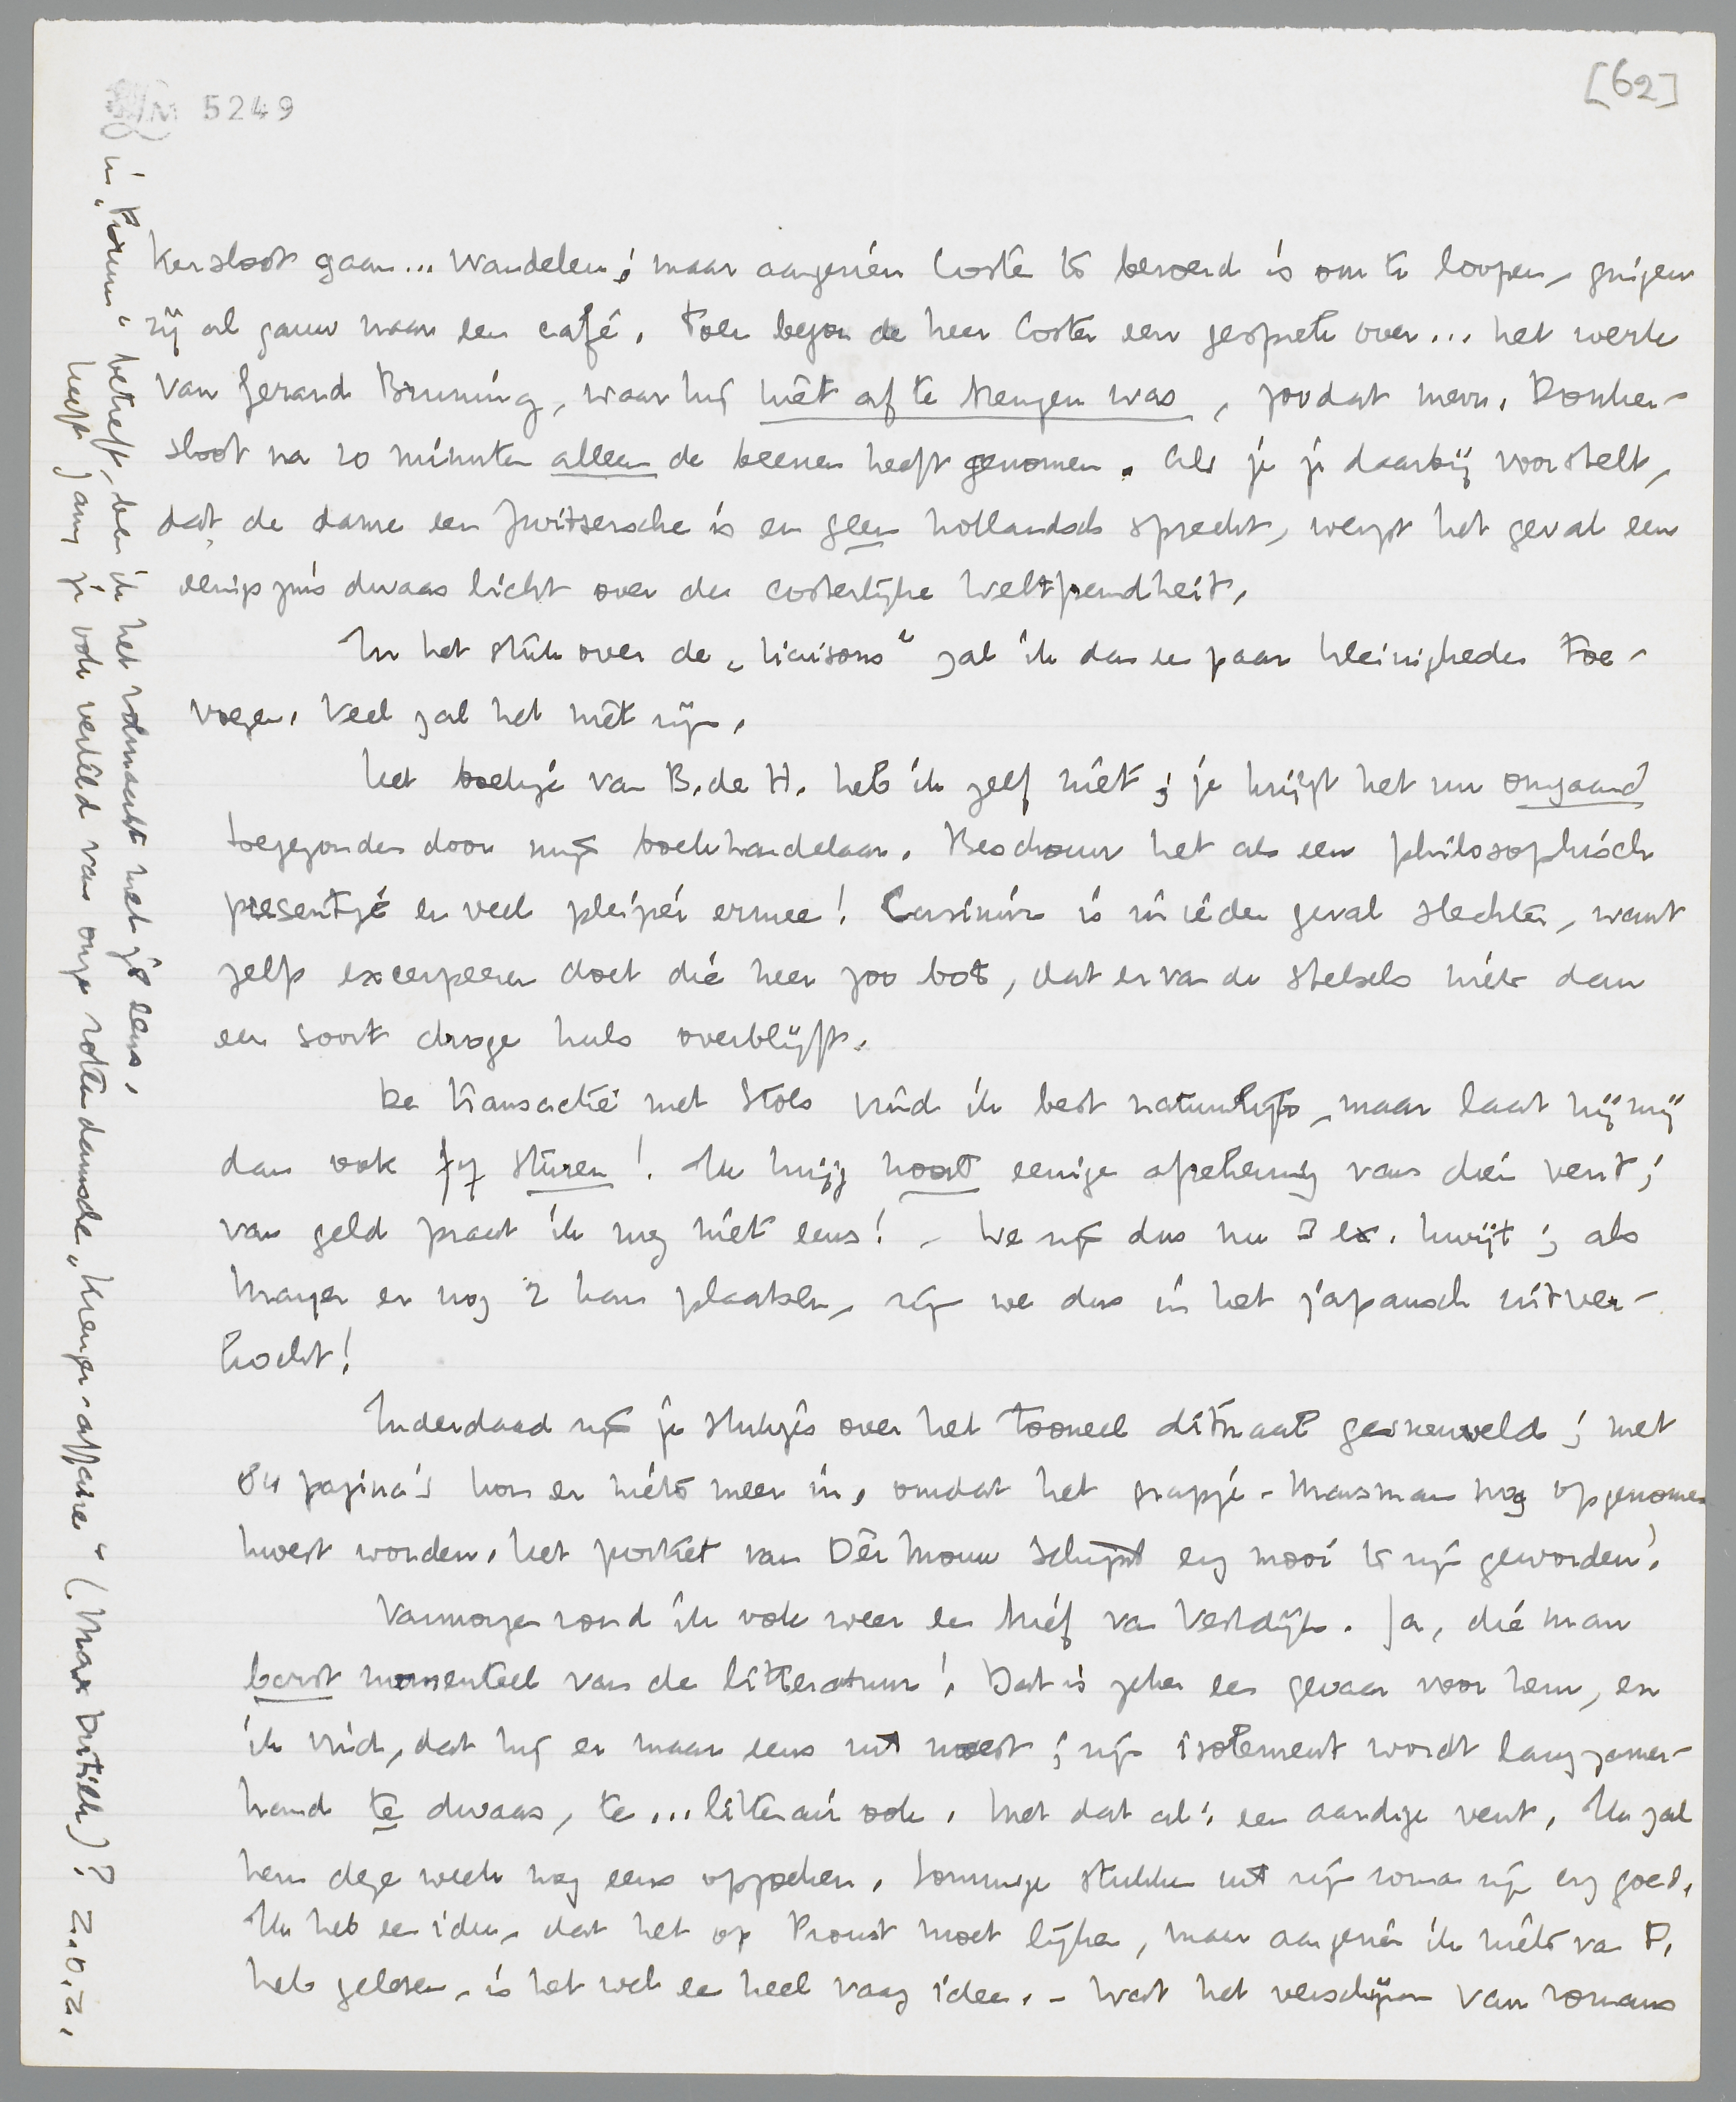 5249
[62]
kersloot gaan... wandelen; maar aangezien Coster te beroerd is om te loopen, gingen
zij al gauw naar een café. Toen begon de heer Coster een gesprek over... het werk
van Gerard Bruning, waar hij niet af te brengen was, zoodat mevr. Donker-
sloot na 10 minuten alleen de beenen heeft genomen. Als je je daarbij voorstelt,
dat de dame een Zwitsersche is en geen hollandsch spreekt, werpt het geval een
eenigszins dwaas licht over de costerlijke Weltfremdheit.
In het stuk over de „liaisons" zal ik dan een paar kleinigheden toe-
voegen. Veel zal het niet zijn.
Het boekje van B. de H. heb ik zelf niet; je krijgt het nu omgaand
toegezonden door mijn boekhandelaar. Beschouw het als een philosophisch
presentje en veel pleizier ermee! Casimir is in ieder geval slechter, want
zelf excerpeeren doet die heer zoo bot, dat er van de stelsels niets dan
een soort droge huls overblijft.
De transactie met Stols vind ik best natuurlijk, maar laat hij mij
dan ook f 7 sturen! Ik krijg nooit eenige afrekening van dien vent;
van geld praat ik nog niet eens! – We zijn dus nu 3 ex. kwijt; als
Mayer er nog 2 kan plaatsen, zijn we dus in het japansch uitver-
kocht!
Inderdaad zijn je stukjes over het tooneel ditmaal gesneuveld; met
84 pagina's kon er niets meer in, omdat het grapje-Marsman nog opgenomen
moest worden. Het portret van Dèr Mouw schijnt erg mooi te zijn geworden!
Vanmorgen vond ik ook weer een brief van Vestdijk. Ja, die man
barst momenteel van de litteratuur! Dat is zeker een gevaar voor hem, en
ik vind, dat hij er maar eens uit moest; zijn isolement wordt langzamer-
hand te dwaas, te... litterair ook. Met dat al: een aardige vent. Ik zal
hem deze week nog eens opzoeken. Sommige stukken uit zijn roman zijn erg goed.
Ik heb een idee, dat het op Proust moet lijken, maar aangezien ik niets van P.
heb gelezen, is het wel een heel vaag idee. – Wat het verschijnen van romans
in „Forum" betreft, ben ik het volmaakt met je eens.
Heeft Jany je ook verteld van onze rotterdamsche „Kreuger-affaire" (Max Dutilh)? Z.O.Z.